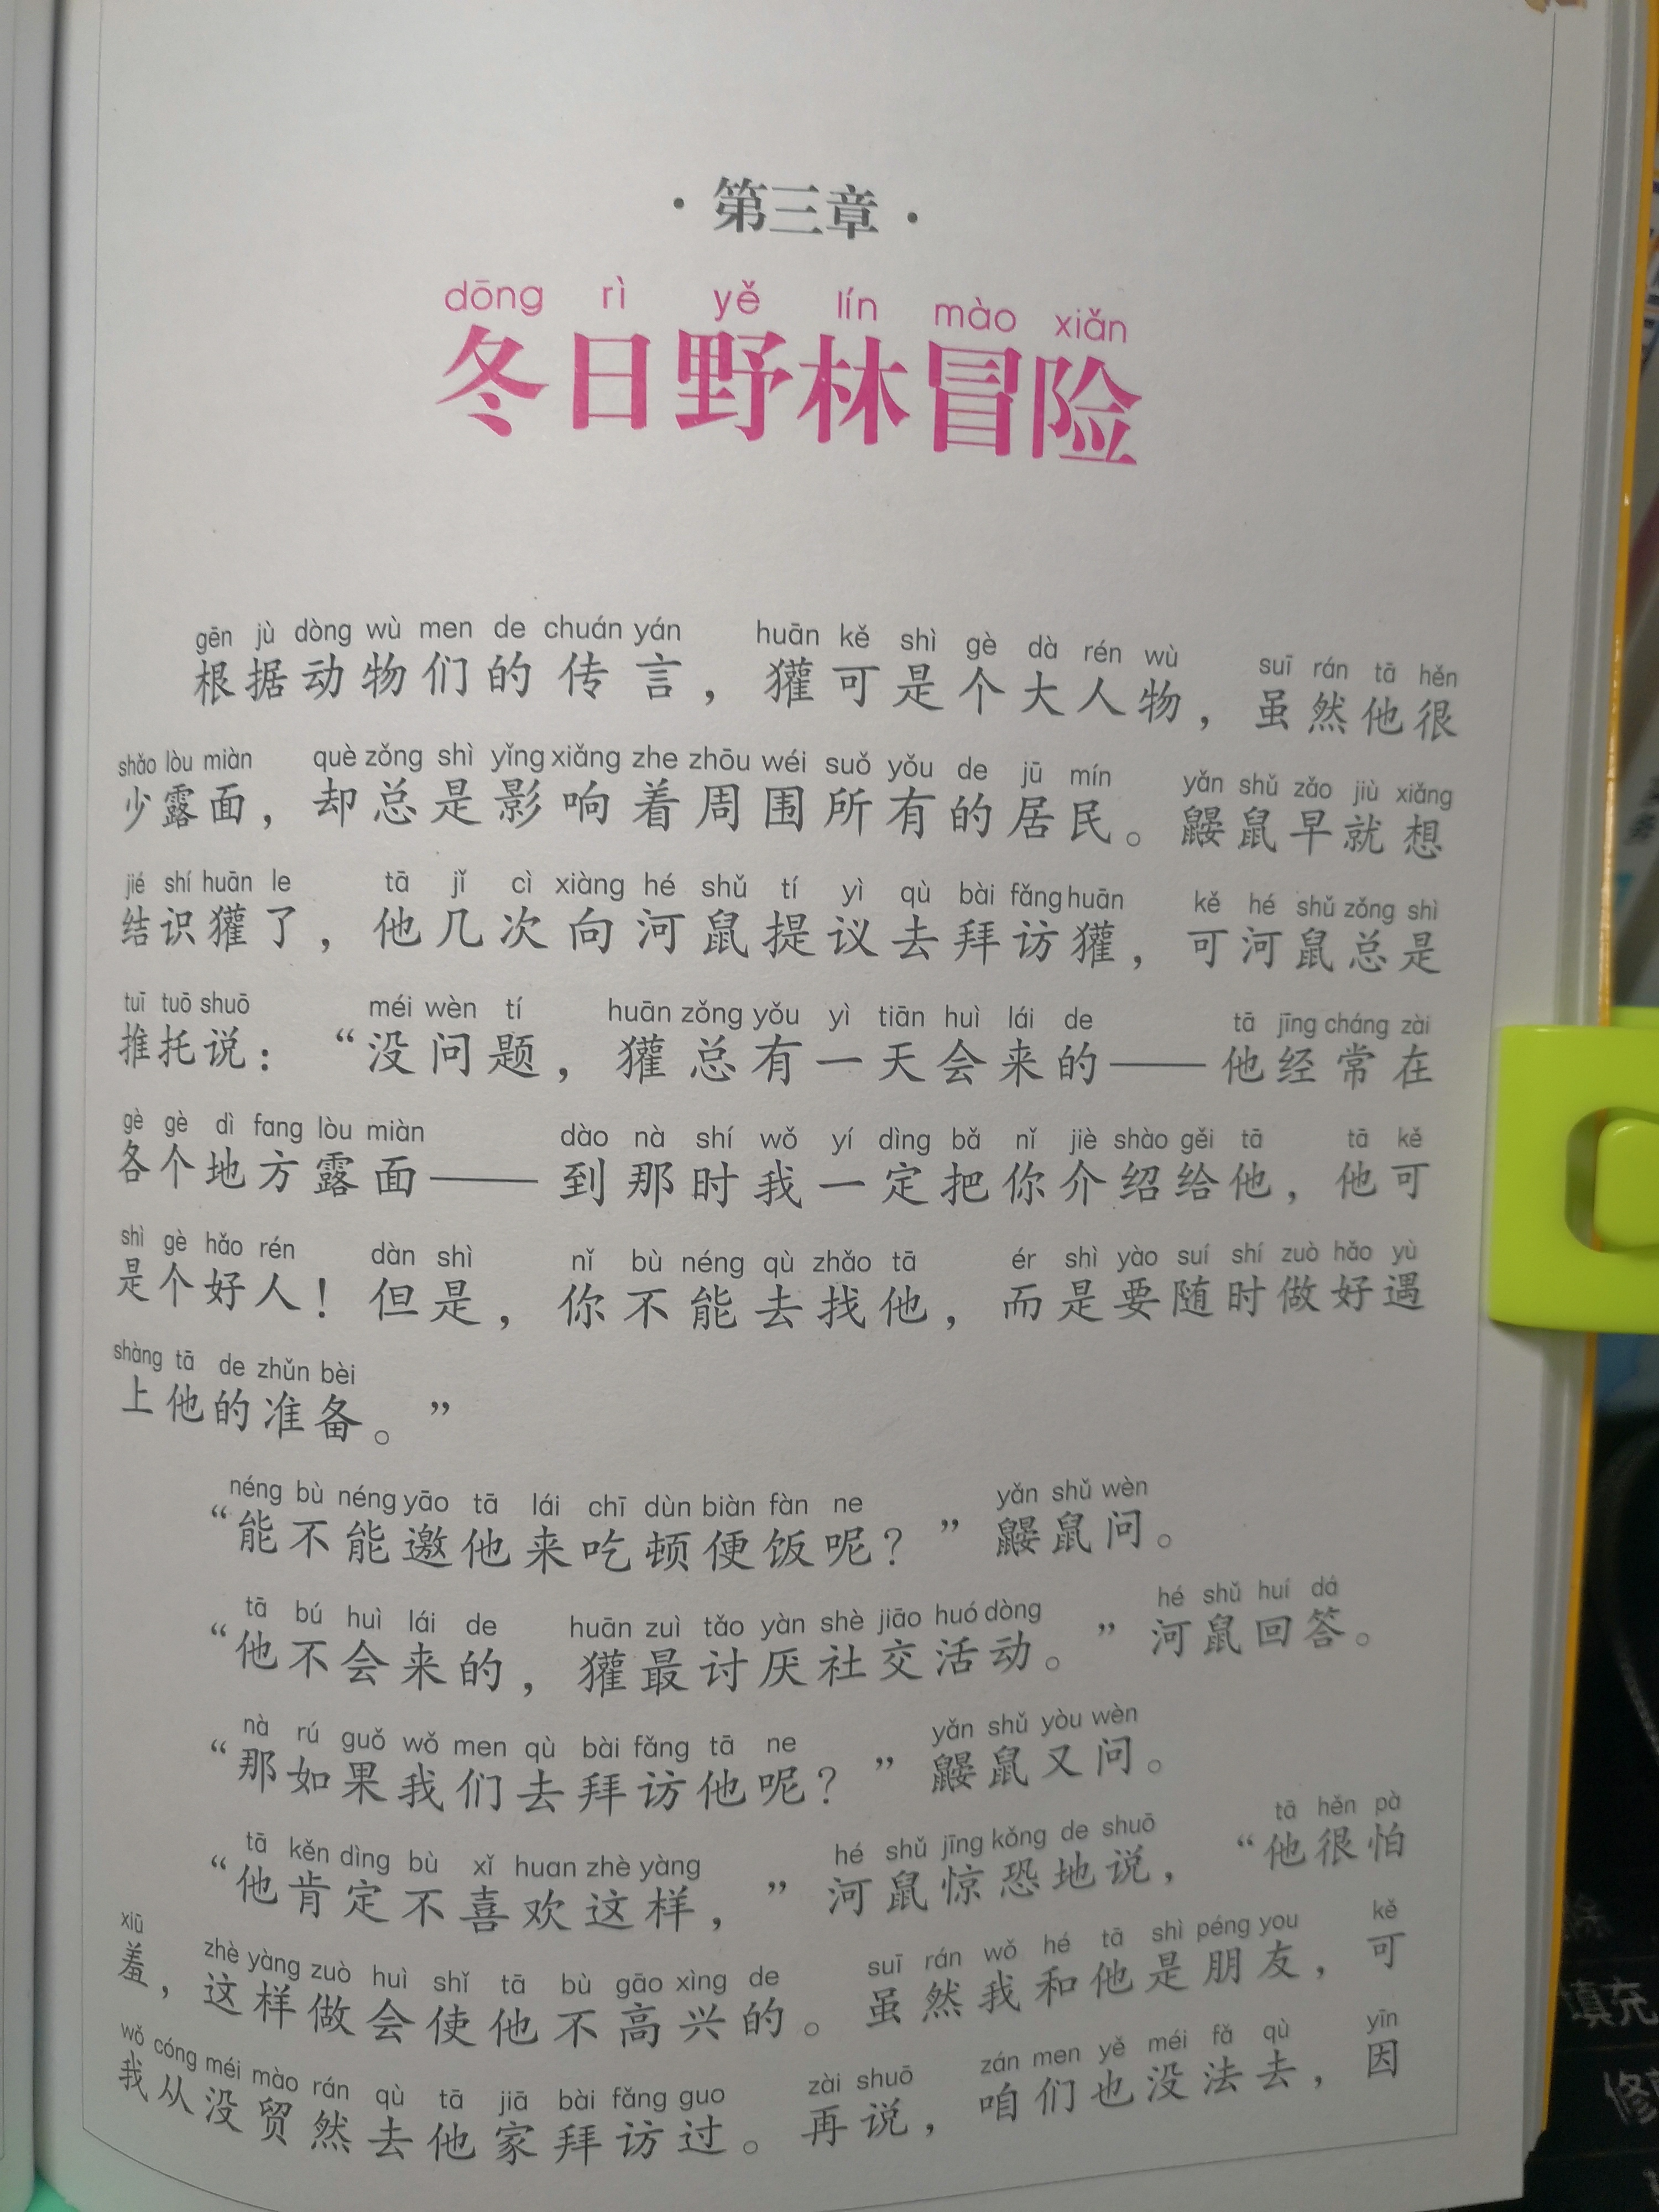 ·第三章·
dōng rì yě lín mào xiǎn
冬日野林冒险
gēn jù dòng wù men de chuán yán huān kě shì gè dà rén wù suī rán tā hěn
根据动物们的传言，獾可是个大人物，虽然他很
shǎo lòu miàn què zǒng shì yǐng xiǎng zhe zhōu wéi suǒ yǒu de jū mín yǎn shǔ zǎo jiù xiǎng
少露面，却总是影响着周围所有的居民。鼹鼠早就想
jié shí huān le tā jǐ cì xiàng hé shǔ tí yì qù bài fǎng huān kě hé shǔ zǒng shì
结识獾了，他几次向河鼠提议去拜访獾，可河鼠总是
tuī tuō shuō méi wèn tí huān zǒng yǒu yì tiān huì lái de tā jīng cháng zài
推托说：“没问题，獾总有一天会来的——他经常在
gè gè dì fang lòu miàn dào nà shí wǒ yí dìng bǎ nǐ jiè shào gěi tā tā kě
各个地方露面——到那时我一定把你介绍给他，他可
shì gè hǎo rén dàn shì nǐ bù néng qù zhǎo tā ér shì yào suí shí zuò hǎo yù
是个好人！但是，你不能去找他，而是要随时做好遇
shàng tā de zhǔn bèi
上他的准备。”
néng bù néng yāo tā lái chī dùn biàn fàn ne yǎn shǔ wèn
“能不能邀他来吃顿便饭呢？”鼹鼠问。
tā bú huì lái de huān zuì tǎo yàn shè jiāo huó dòng hé shǔ huí dá
“他不会来的，獾最讨厌社交活动。”河鼠回答。
nà rú guǒ wǒ men qù bài fǎng tā ne yǎn shǔ yòu wèn
“那如果我们去拜访他呢？”鼹鼠又问。
tā kěn dìng bù xǐ huan zhè yàng hé shǔ jīng kǒng de shuō tā hěn pà
“他肯定不喜欢这样，”河鼠惊恐地说，“他很怕
xiū zhè yàng zuò huì shǐ tā bù gāo xìng de suī rán wǒ hé tā shì péng you kě
羞，这样做会使他不高兴的。虽然我和他是朋友，可
wǒ cóng méi mào rán qù tā jiā bài fǎng guo zài shuō zán men yě méi fǎ qù yīn
我从没贸然去他家拜访过。再说，咱们也没法去，因
填充